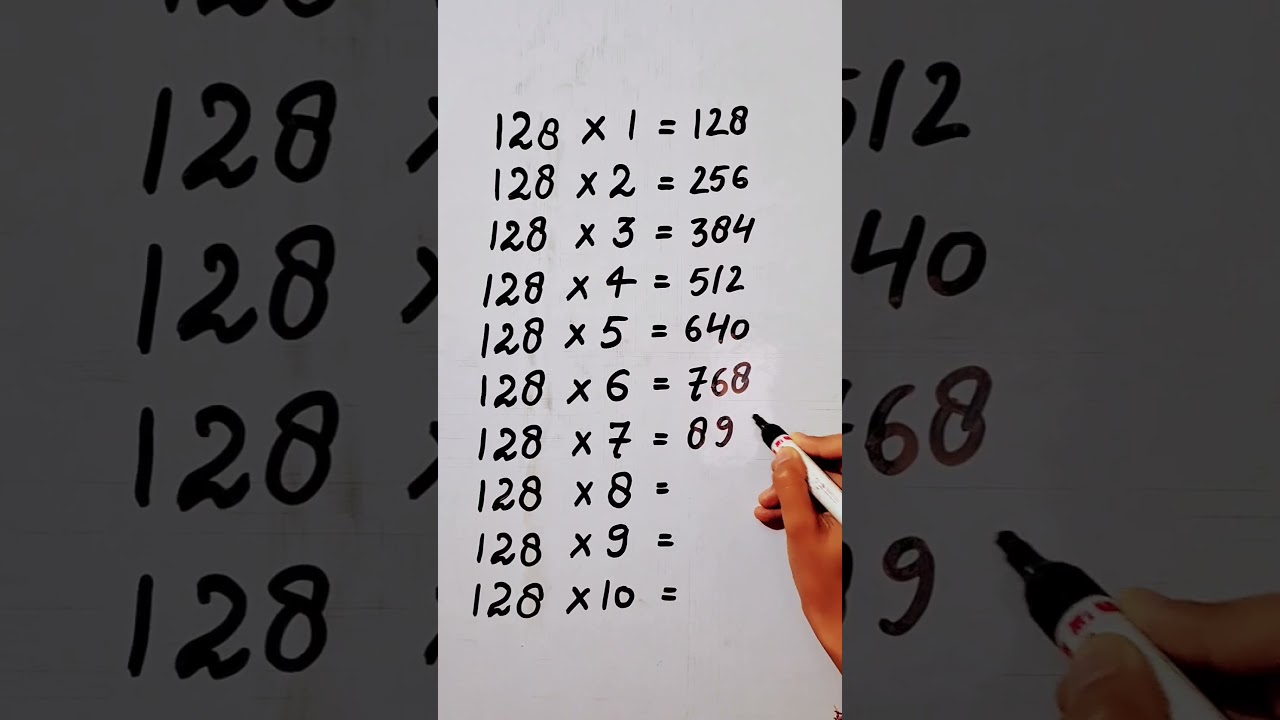 128 × 1 = 128
128 × 2 = 256
128 × 3 = 384
128 × 4 = 512
128 × 5 = 640
128 × 6 = 768
128 × 7 = 89
128 × 8 =
128 × 9 =
128 × 10 =